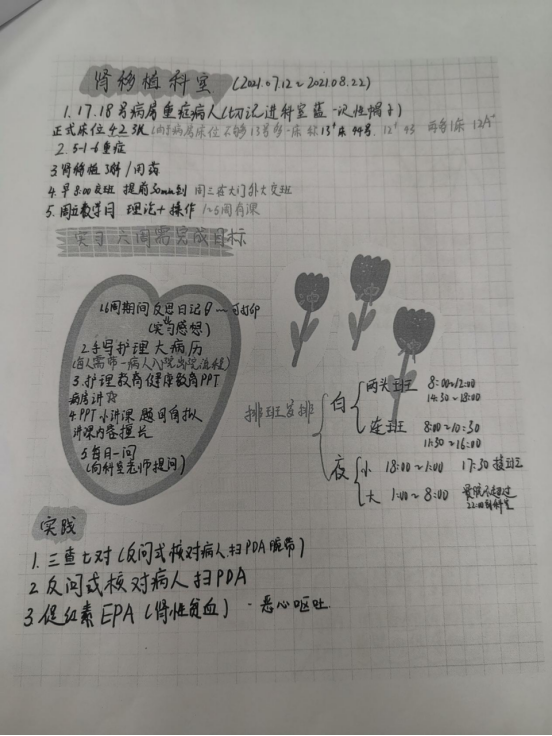 肾移植科室 (2021.07.12~2021.08.22)
1. 17.18号病房重症病人(切记进科室蓝一次性帽子)
正式床位42 3人(由于病房床位不够13号多一床 13+床 44号. 12+ 43 两各1床 12A
2. 5-1-6重症
3 肾移植 3科/问药
4. 早8:00交班 提前30min到 周三在大门外大交班
5. 周五教学日 理论+操作 1~5周有课
实习 六周需完成目标
1.6周期间反思日记9 可打印
(实习感想)
2.手写护理大病历
(每人需带一病人入院出院流程)
3.护理教育健康教育PPT
病房讲
4.PPT小讲课 题目自拟
讲课内容擅长
5 每日一问
(向科室老师提问)
排班安排
白
两头班 8:00~12:00
14:30~18:00
连班 8:00~10:30
11:30~16:00
夜
小 18:00~1:00 17:30接班
大 1:00~8:00 最晚不超过
22:00到科室
实践
1. 三查七对(反问式核对病人.扫PDA腕带)
2. 反问式核对病人扫PDA
3. 促红素EPA(肾性贫血) · 恶心呕吐.